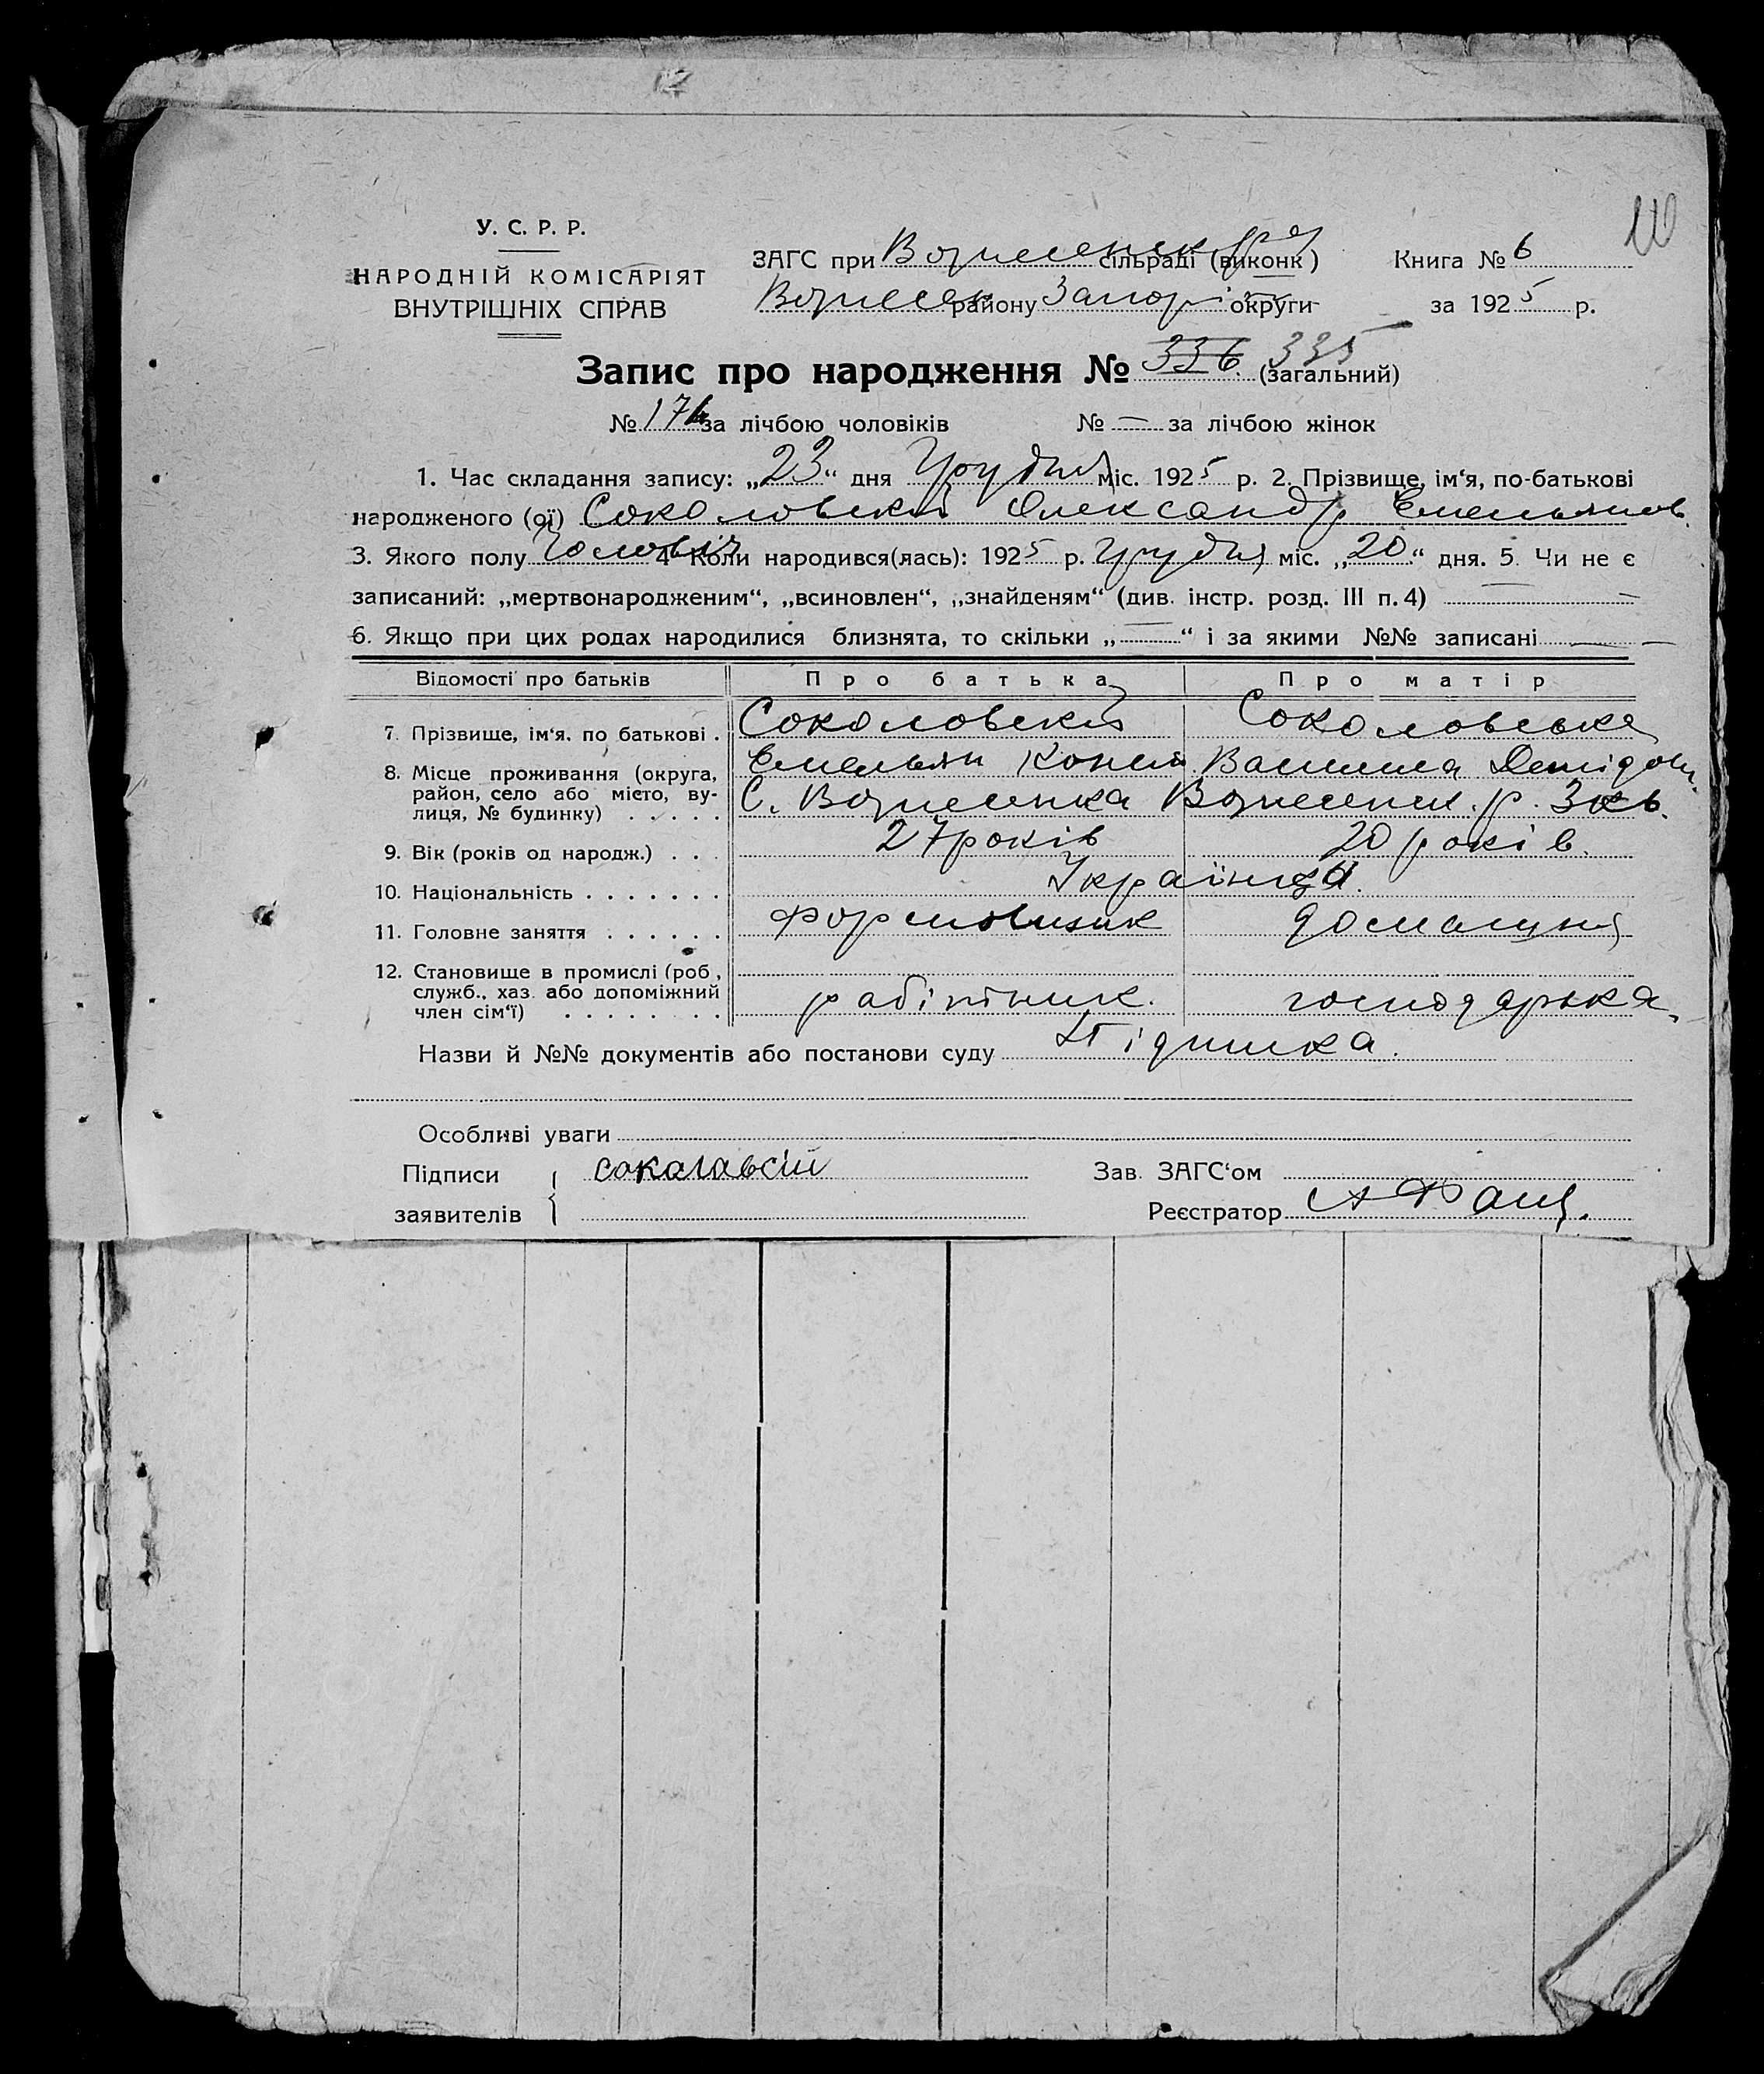 У. С. Р. Р.
НАРОДНІЙ КОМІСАРІЯТ
ВНУТРІШНІХ СПРАВ
ЗАГС при Вознесенск сільраді (виконк) Книга № 6
Вознесен району Запоріз округи за 1925 р.
Запис про народження № 336 335 (загальний)
№ 174 за лічбою чоловіків № — за лічбою жінок
1. Час складання запису: „23“ дня Грудня міс. 1925 р. 2. Прізвище, ім‘я, по-батькові
народженого (ої) Соколовский Олександр Емельянов.
3. Якого полу Чоловіч 4 Коли народився(лась): 1925 р. Грудня міс. „20“ дня. 5. Чи не є
записаний: „мертвонародженим“, „всиновлен“, „знайденям“ (див. інстр. розд. III п. 4) —
6. Якщо при цих родах народилися близнята, то скільки „—“ і за якими №№ записані —
Відомості про батьків Про батька Про матір
7. Прізвище, ім‘я. по батькові . Соколовский Соколовська
Емельян
8. Місце проживання (округа,
район, село або місто, ву-
лиця, № будинку) . . . . . С. Вознесенка Вознесенск. р.
9. Вік (років од народж.) . . . 27 років 20 років.
10. Національність . . . . . . . Українці.
11. Головне заняття . . . . . . Формовщик домашня
12. Становище в промислі (роб,
служб., хаз. або допоміжний
член сім‘ї) . . . . . . . . рабітник. господарька.
Назви й №№ документів або постанови суду Підписка.
Особливі уваги
Підписи
заявителів сокалавсій
Зав. ЗАГС‘ом
Реєстратор